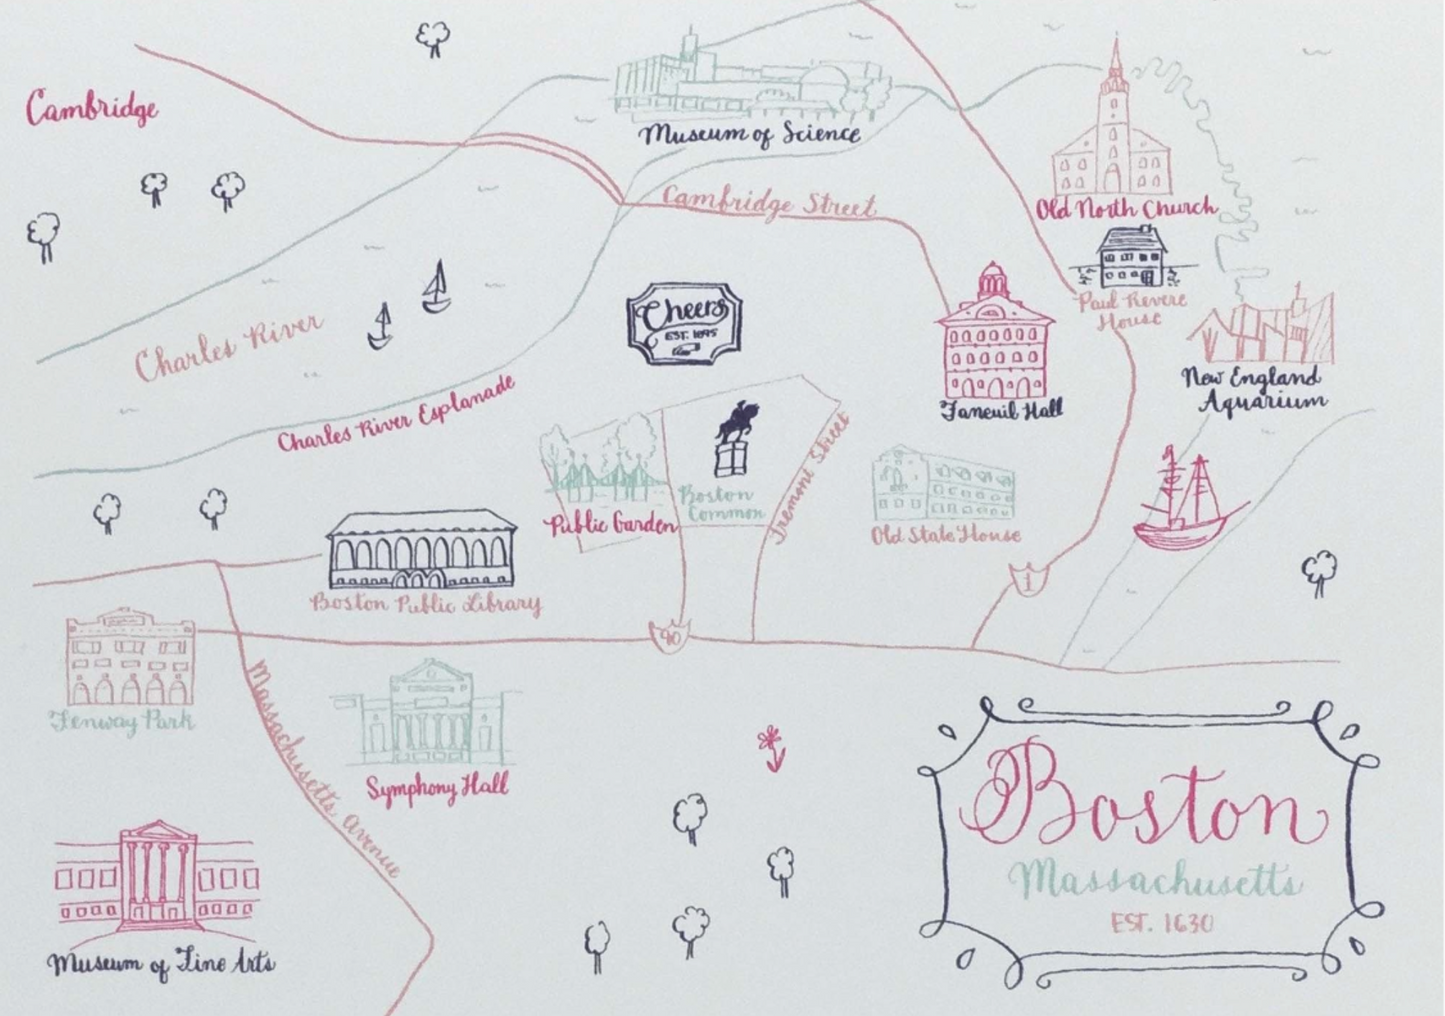 Cambridge
Museum of Science
Cambridge Street
Old North Church
Paul Revere
House
Charles River
Cheers
EST. 1895
Faneuil Hall
New England
Aquarium
Charles River Esplanade
Tremont Street
Boston
Common
Public Garden
Old State House
1
Boston Public Library
90
Fenway Park
Massachusetts Avenue
Symphony Hall
Boston
Massachusetts
EST. 1630
Museum of Fine Arts